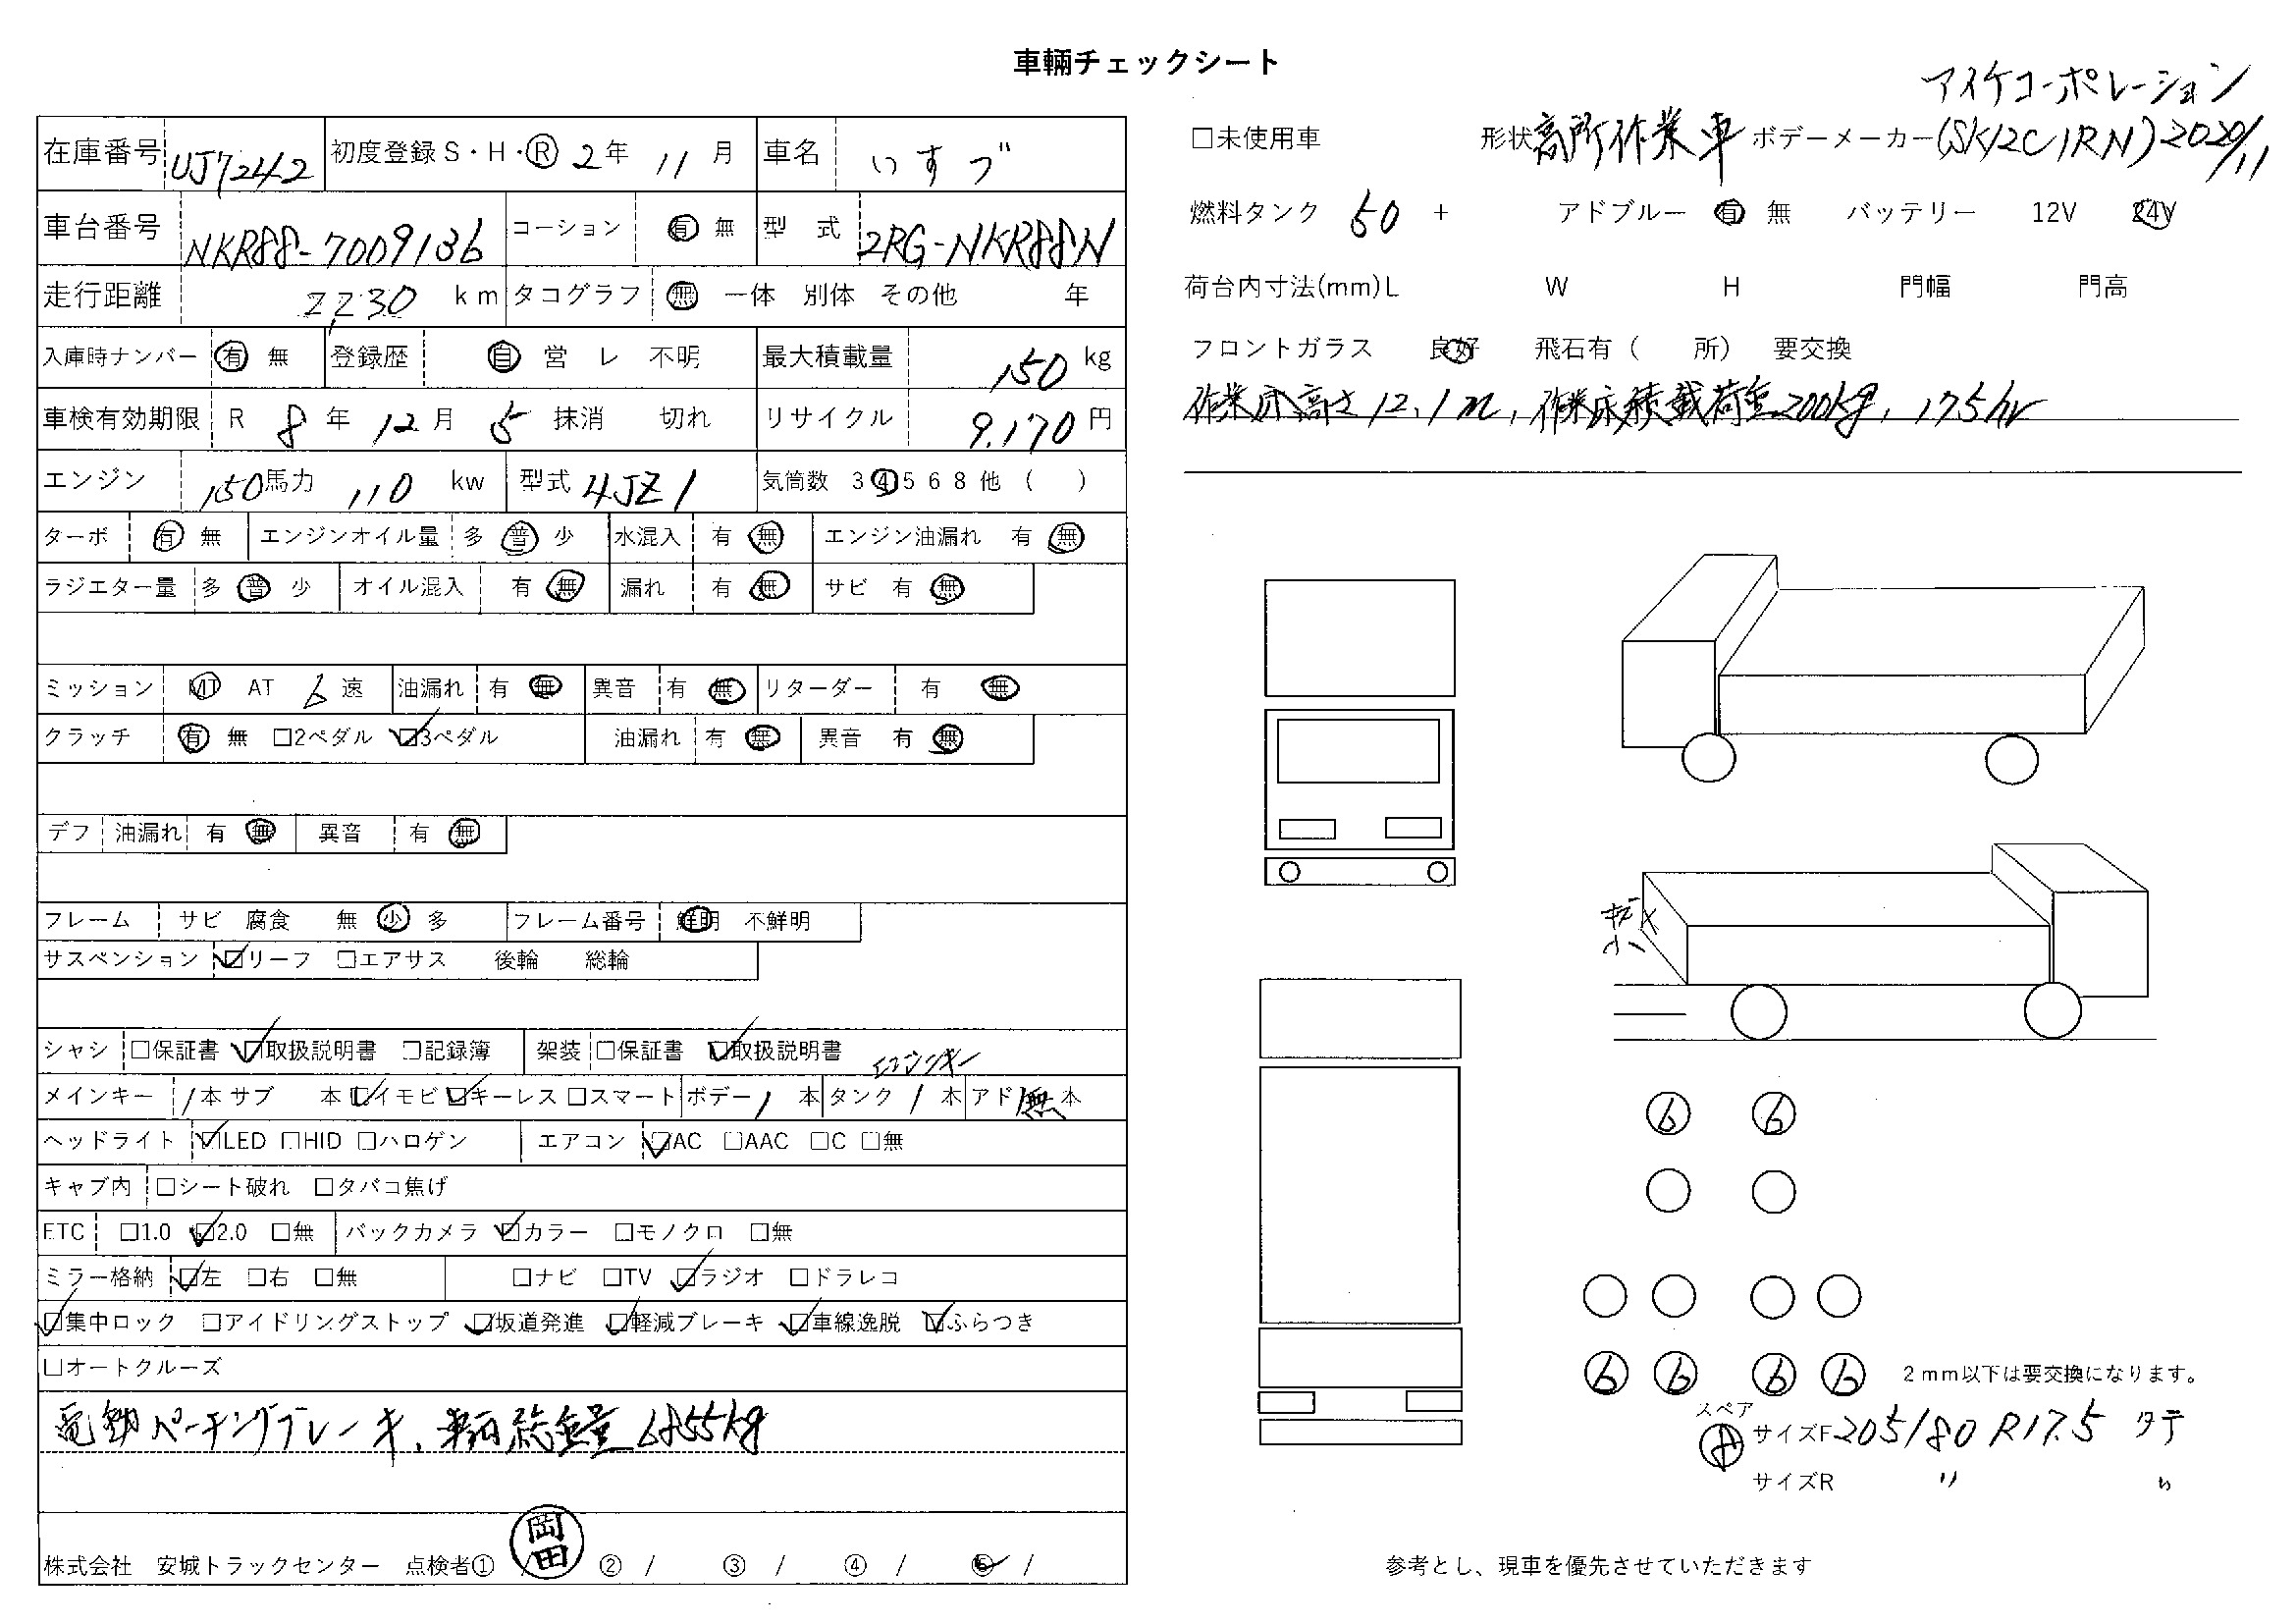 車輛チェックシート
アイケコーポレーション
在庫番号 UJ7242 初度登録 S・H・R 2年 11月 車名 いすゞ
□未使用車 形状 高所作業車 ボデーメーカー (SK12C1RN) 2020/11
車台番号 NKR88-7009136 コーション 有 無 型式 2RG-NKR88N
燃料タンク 50 + アドブルー 有 無 バッテリー 12V 24V
走行距離 2,230 km タコグラフ 無 一体 別体 その他 年
荷台内寸法(mm)L W H 門幅 門高
入庫時ナンバー 有 無 登録歴 自 営 レ 不明 最大積載量 150 kg
フロントガラス 良好 飛石有（ 所） 要交換
車検有効期限 R 8年 12月 5 抹消 切れ リサイクル 9,170円
作業床高さ12.1m, 作業床積載荷重200kg, 175hr
エンジン 150馬力 110 kw 型式 4JZ1 気筒数 3 4 5 6 8 他（ ）
ターボ 有 無 エンジンオイル量 多 普 少 水混入 有 無 エンジン油漏れ 有 無
ラジエター量 多 普 少 オイル混入 有 無 漏れ 有 無 サビ 有 無
ミッション MT AT 6速 油漏れ 有 無 異音 有 無 リターダー 有 無
クラッチ 有 無 □2ペダル ☑3ペダル 油漏れ 有 無 異音 有 無
デフ 油漏れ 有 無 異音 有 無
フレーム サビ 腐食 無 少 多 フレーム番号 鮮明 不鮮明
キズ
小
サスペンション ☑リーフ □エアサス 後輪 総輪
シャシ □保証書 ☑取扱説明書 □記録簿 架装 □保証書 ☑取扱説明書
エンジンキー
メインキー 1本 サブ 本 ☑イモビ ☑キーレス □スマート ボデー 1本 タンク 1本 アド 無本
6 6
ヘッドライト ☑LED □HID □ハロゲン エアコン ☑AC □AAC □C □無
キャブ内 □シート破れ □タバコ焦げ
ETC □1.0 ☑2.0 □無 バックカメラ ☑カラー □モノクロ □無
ミラー格納 ☑左 □右 □無 □ナビ □TV ☑ラジオ □ドラレコ
☑集中ロック □アイドリングストップ ☑坂道発進 ☑軽減ブレーキ ☑車線逸脱 ☑ふらつき
□オートクルーズ
6 6 6 6 2mm以下は要交換になります。
電動パーキングブレーキ, 車両総重量6855kg
スペア
サイズF 205/80 R17.5 タテ
サイズR 〃 〃
株式会社 安城トラックセンター 点検者① / 岡田 ② / ③ / ④ / ⑤ /
参考とし、現車を優先させていただきます